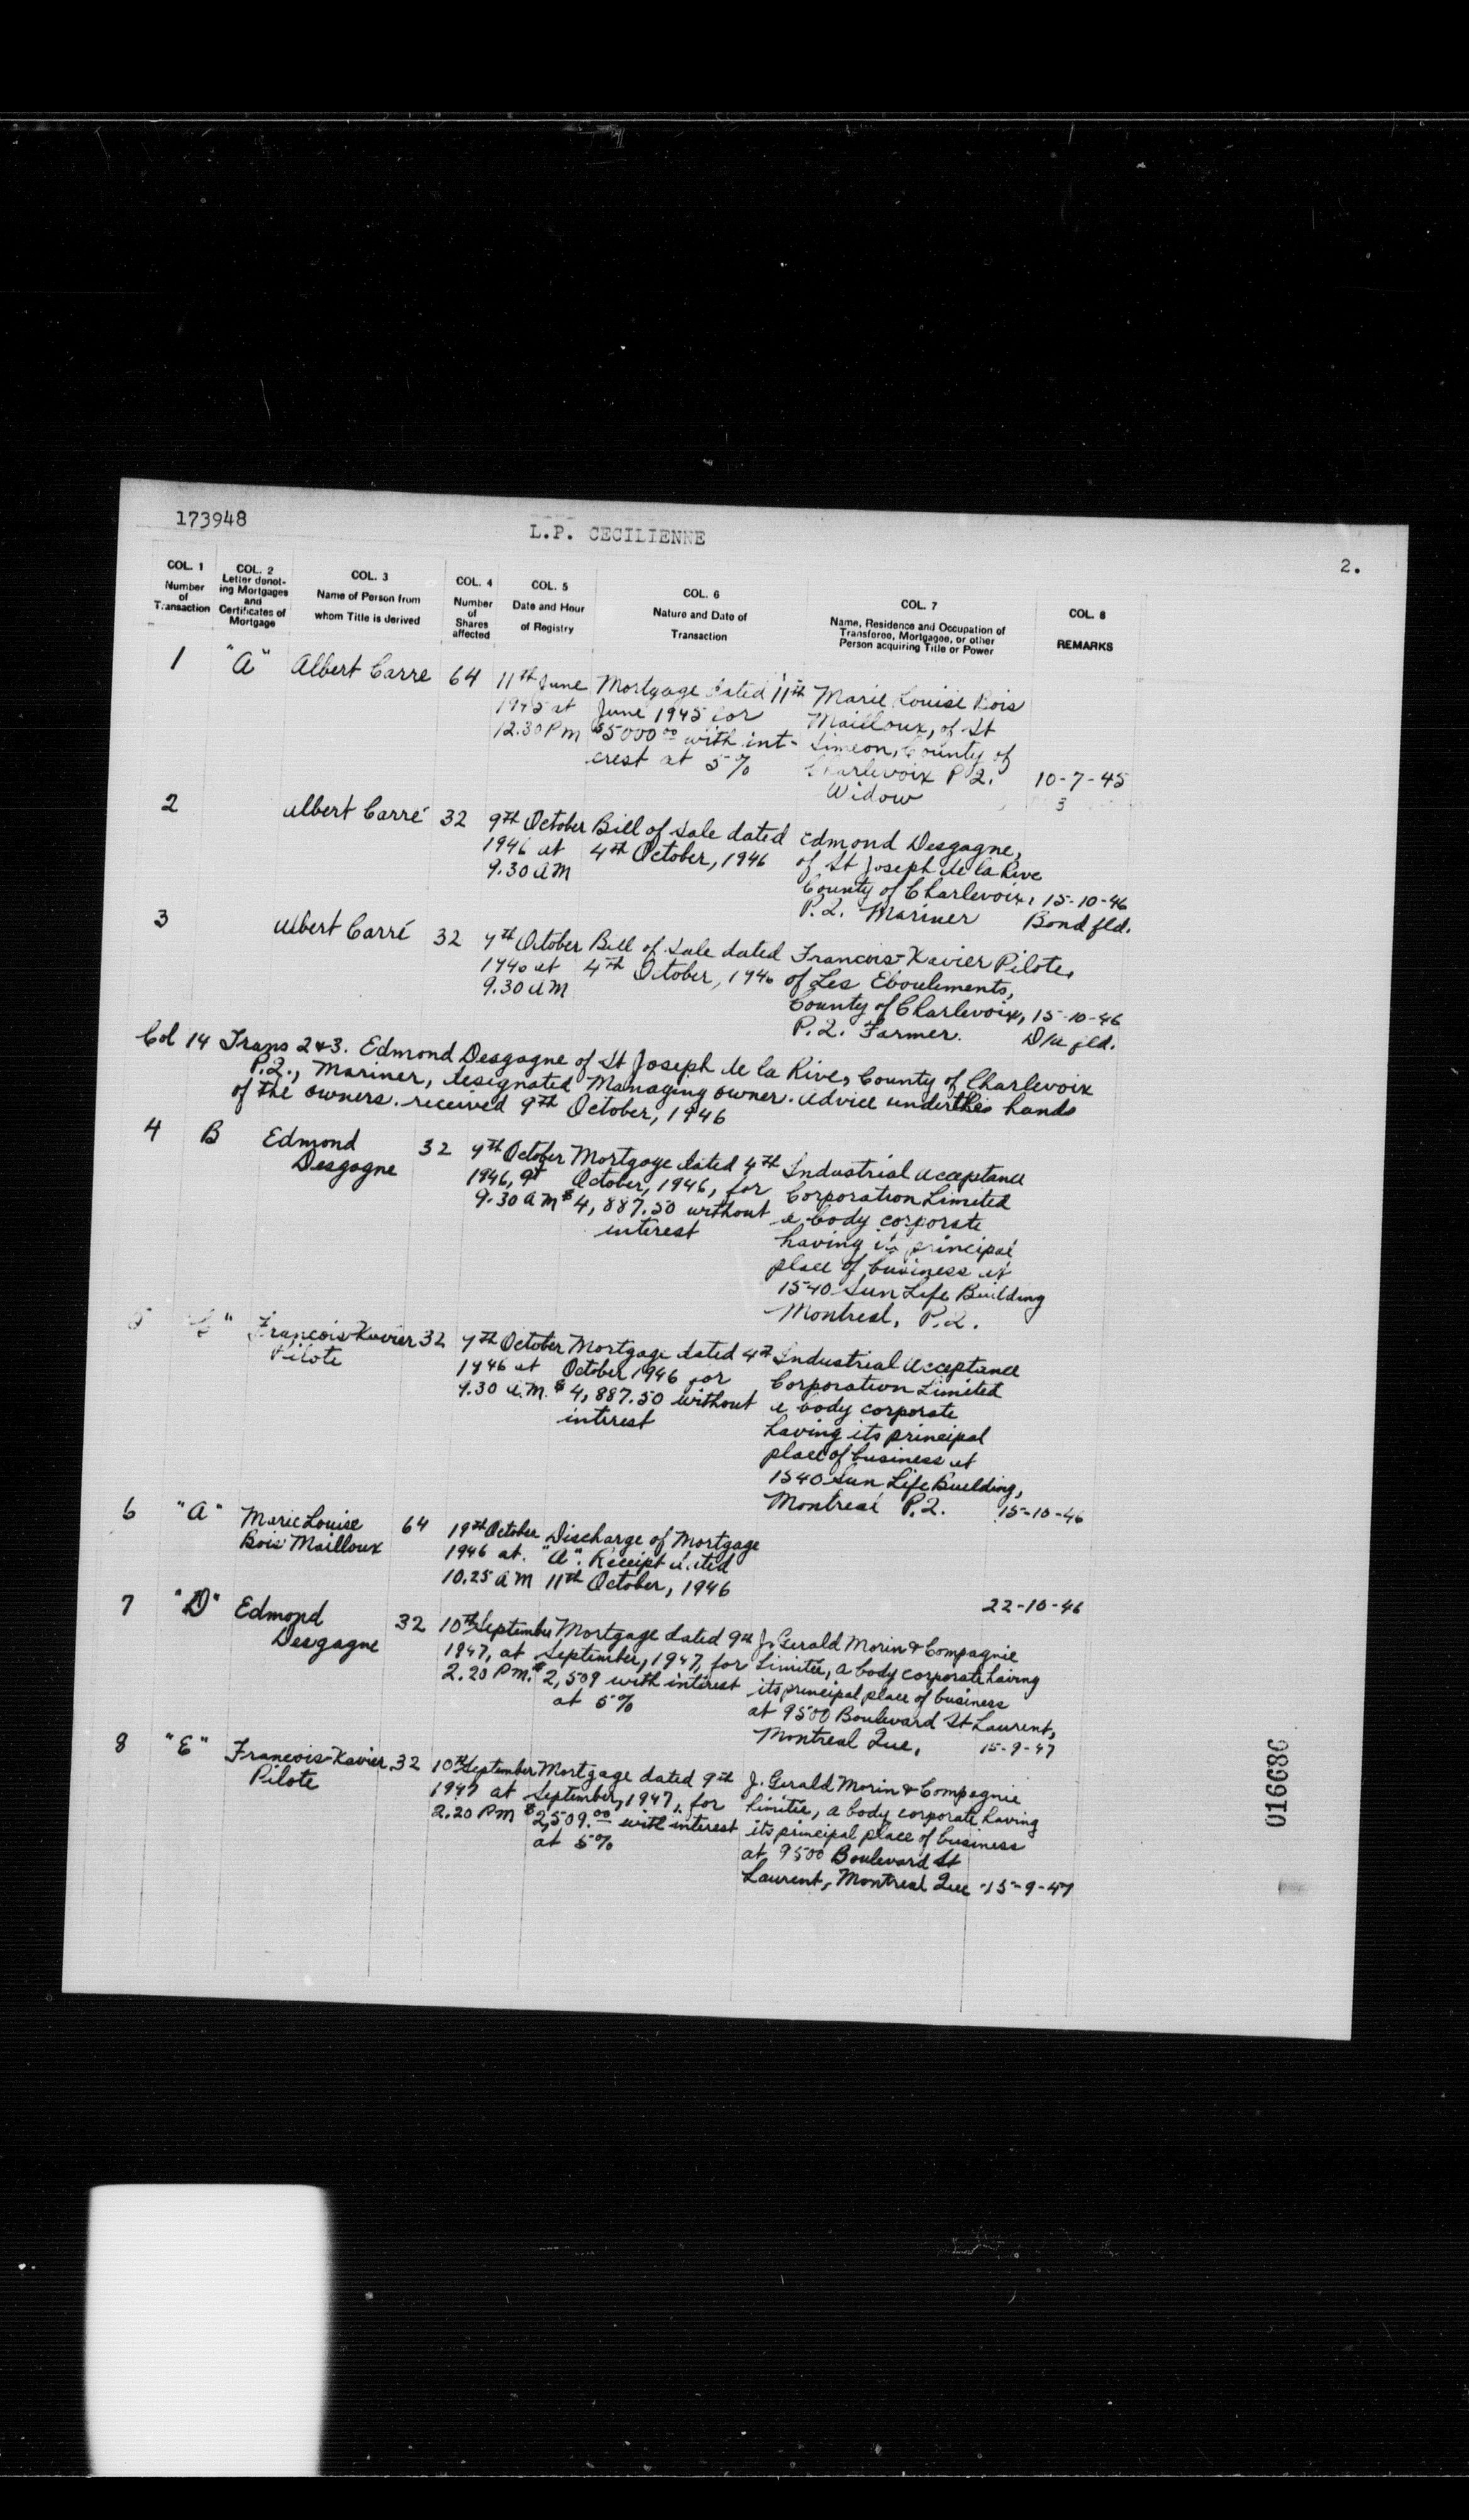 173948
L.P. CECILIENNE
2.
COL. 1
Number
of
Transaction
COL. 2
Letter denot-
ing Mortgages
and
Certificates of
Mortgage
COL. 3
Name of Person from
whom Title is derived
COL. 4
Number
of
Shares
affected
COL. 5
Date and Hour
of Registry
COL. 6
Nature and Date of
Transaction
COL. 7
Name, Residence and Occupation of
Transferee, Mortgagee, or other
Person acquiring Title or Power
COL. 8
REMARKS
1 "A" Albert Carre 64 11th June Mortgage dated 11th Marie Louise Bois
1945 at June 1945 for Mailloux, of St
12.30 PM $5000.00 with int- Simeon, County of
erest at 5% Charlevoix P.Q. 10-7-45
Widow 3
2 Albert Carré 32 9th October Bill of Sale dated Edmond Desgagne,
1946 at 4th October, 1946 of St Joseph de la Rive
9.30 AM County of Charlevoix, 15-10-46
P.Q. Mariner Bond fld.
3 Albert Carré 32 9th October Bill of Sale dated Francois-Xavier Pilote,
1946 at 4th October, 1946 of Les Eboulements,
9.30 AM County of Charlevoix, 15-10-46
P.Q. Farmer. D/u fld.
Col 14 Trans 2&3. Edmond Desgagne of St Joseph de la Rive, County of Charlevoix
P.Q., Mariner, designated Managing owner. Advice under the hands
of the owners. received 9th October, 1946
4 B Edmond 32 9th October Mortgage dated 4th Industrial Acceptance
Desgagne 1946, at October, 1946, for Corporation Limited
9.30 AM $4,887.50 without a body corporate
interest having its principal
place of business at
1540 Sun Life Building
Montreal, P.Q.
5 "C" Francois-Xavier 32 9th October Mortgage dated 4th Industrial Acceptance
Pilote 1946 at October 1946 for Corporation Limited
9.30 A.M. $4,887.50 without a body corporate
interest having its principal
place of business at
1540 Sun Life Building,
Montreal P.Q. 15-10-46
6 "A" Marie Louise 64 19th October Discharge of Mortgage
Bois Mailloux 1946 at. "A". Receipt dated
10.25 AM 11th October, 1946
22-10-46
7 "D" Edmond 32 10th September Mortgage dated 9th J. Gerald Morin & Compagnie
Desgagne 1947, at September, 1947, for Limitée, a body corporate having
2.20 PM. $2,509 with interest its principal place of business
at 5% at 9500 Boulevard St Laurent,
Montreal Que, 15-9-47
8 "E" Francois-Xavier 32 10th September Mortgage dated 9th J. Gerald Morin & Compagnie
Pilote 1947 at September, 1947, for Limitée, a body corporate having
2.20 PM $2,509.00 with interest its principal place of business
at 5% at 9500 Boulevard St
Laurent, Montreal Que - 15-9-47
016686